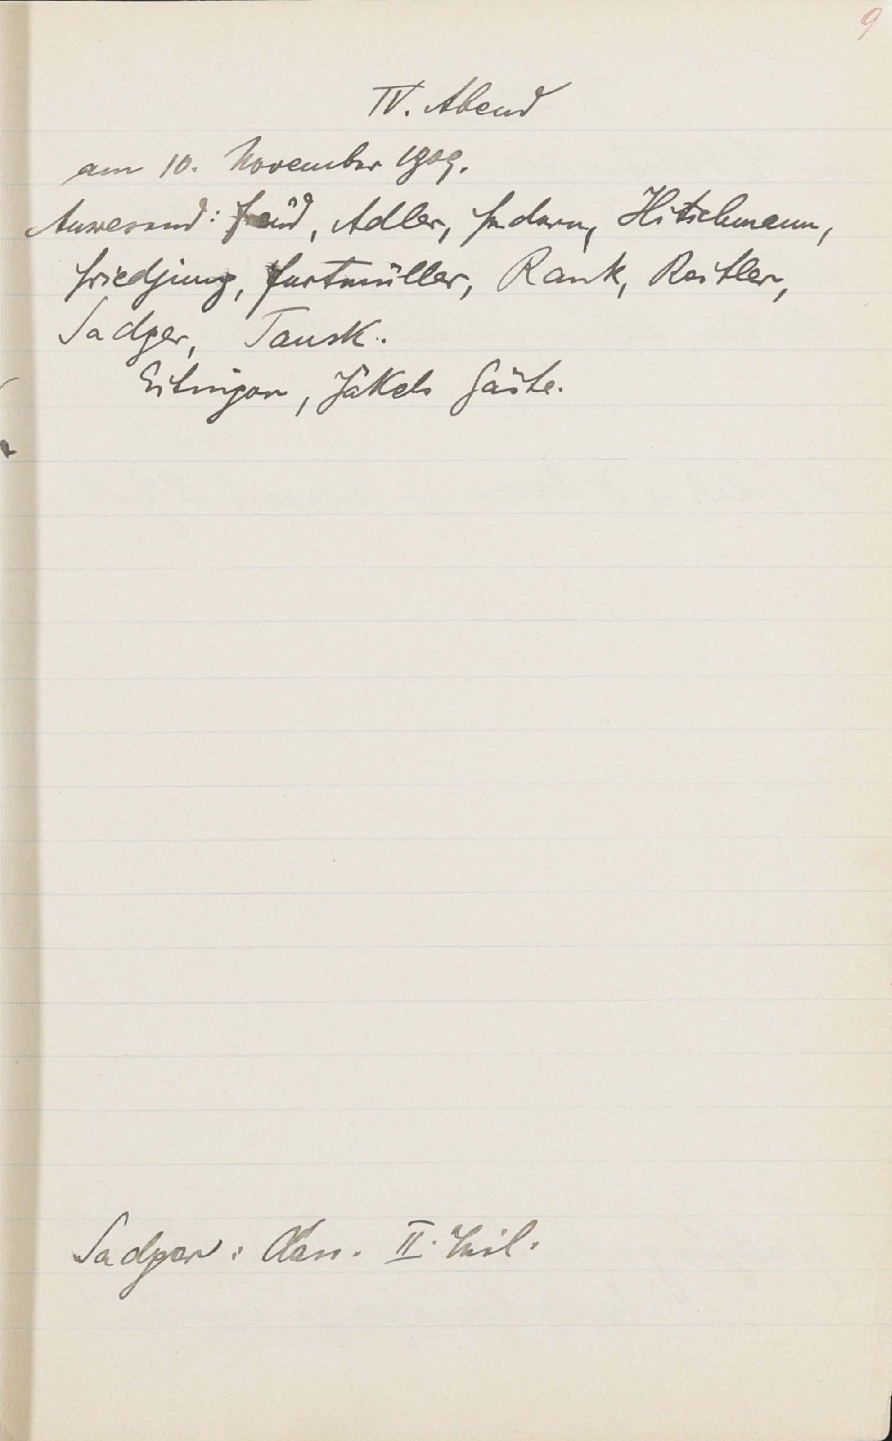 9
IV. Abend
am 10. November 1909.
Anwesend: Freud, Adler, Federn, Hitschmann,
Friedjung, Furtmüller, Rank, Reitler,
Sadger, Tausk.
Eitingon, Jekels Gäste.
Sadger: II. Teil.